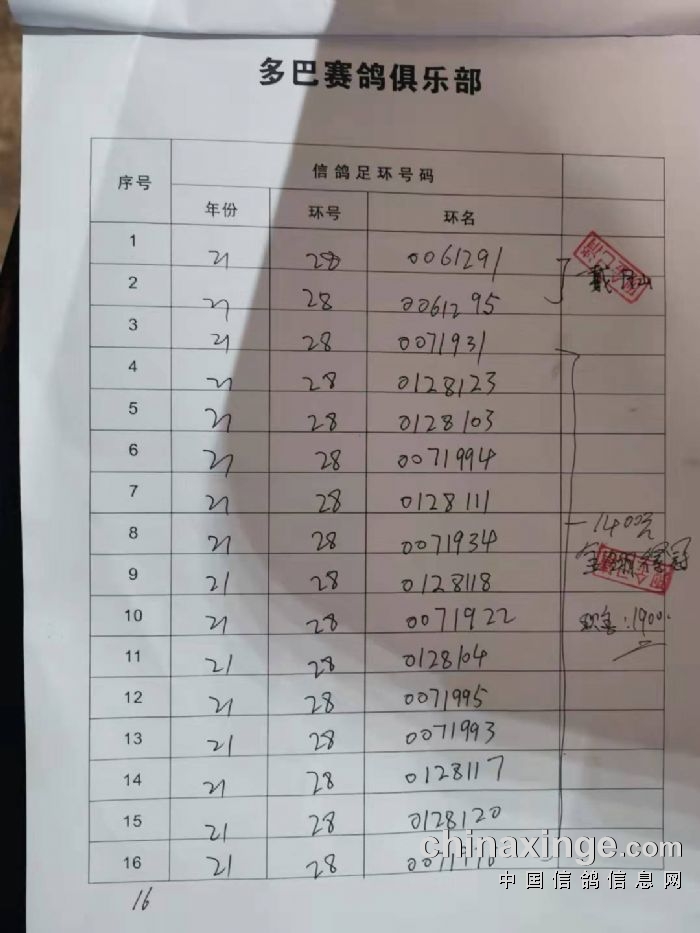 多巴赛鸽俱乐部
序号 信鸽足环号码
年份 环号 环名
1 21 28 0061291
2 21 28 0061295
3 21 28 0071931
4 21 28 0128123
5 21 28 0128103
6 21 28 0071994
7 21 28 0128111
8 21 28 0071934
1400元
9 21 28 0128118
10 21 28 0071922 现金:1900.
11 21 28 0128104
12 21 28 0071995
13 21 28 0071993
14 21 28 0128117
15 21 28 0128120
16 21 28
chinaxinge.com
中国信鸽信息网
16